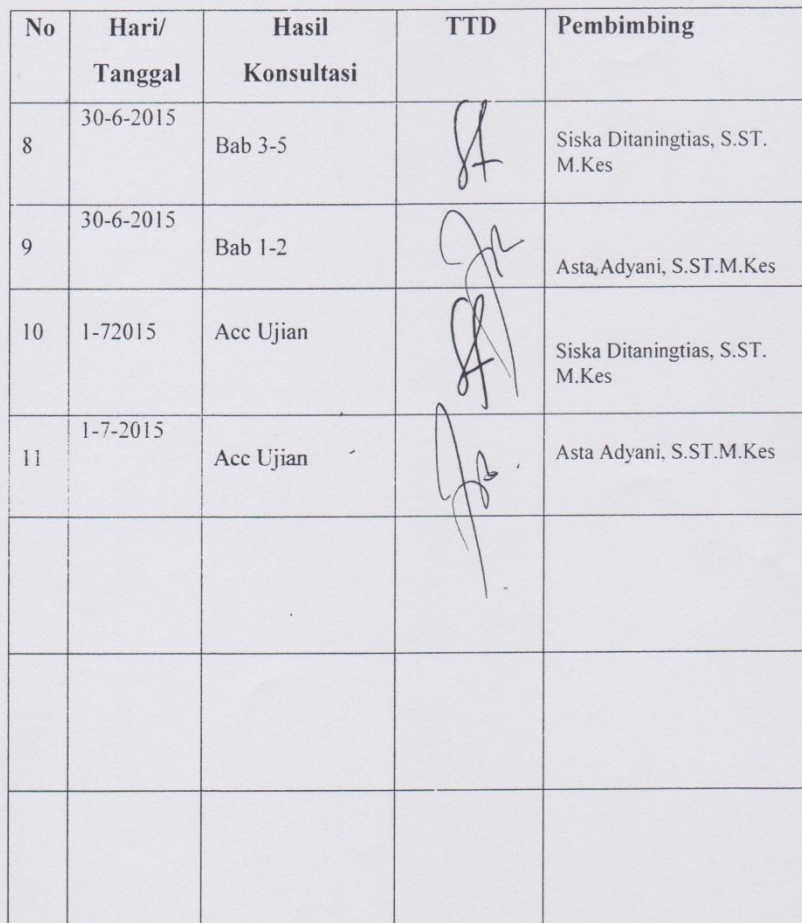 No Hari/ Hasil TTD Pembimbing
Tanggal Konsultasi
8 30-6-2015 Bab 3-5 Siska Ditaningtias, S.ST.
M.Kes
9 30-6-2015 Bab 1-2 Asta Adyani, S.ST.M.Kes
10 1-72015 Acc Ujian Siska Ditaningtias, S.ST.
M.Kes
11 1-7-2015 Acc Ujian Asta Adyani, S.ST.M.Kes